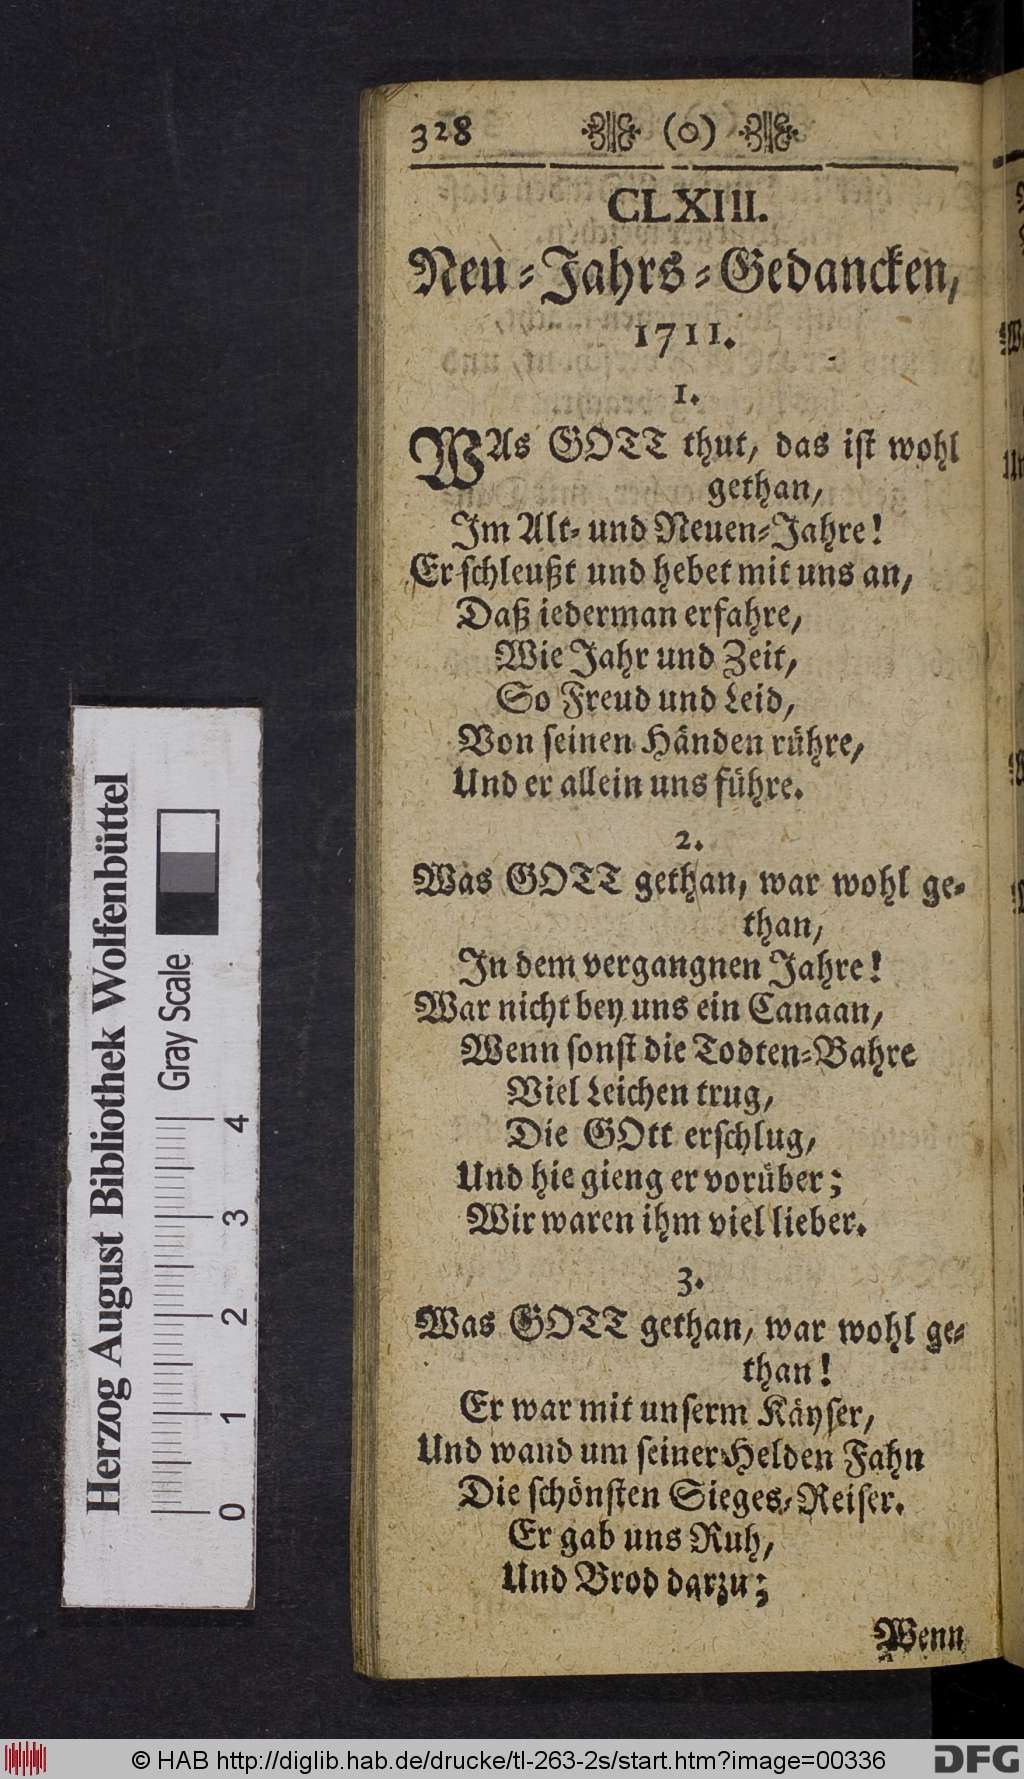 328 (o)
CLXIII.
Neu-Jahrs-Gedancken,
1711.
1.
WAs GOTT thut, das ist wohl
gethan,
Im Alt- und Neuen-Jahre!
Er schleußt und hebet mit uns an,
Daß iederman erfahre,
Wie Jahr und Zeit,
So Freud und Leid,
Von seinen Händen rühre,
Und er allein uns führe.
2.
Was GOTT gethan, war wohl ge-
than,
In dem vergangnen Jahre!
War nicht bey uns ein Canaan,
Wenn sonst die Todten-Bahre
Viel Leichen trug,
Die GOtt erschlug,
Und hie gieng er vorüber;
Wir waren ihm viel lieber.
3.
Was GOTT gethan, war wohl ge-
than!
Er war mit unserm Käyser,
Und wand um seiner Helden Fahn
Die schönsten Sieges-Reiser.
Er gab uns Ruh,
Und Brod darzu;
Wenn
Herzog August Bibliothek Wolfenbüttel
Gray Scale
0 1 2 3 4
© HAB http://diglib.hab.de/drucke/tl-263-2s/start.htm?image=00336
DFG